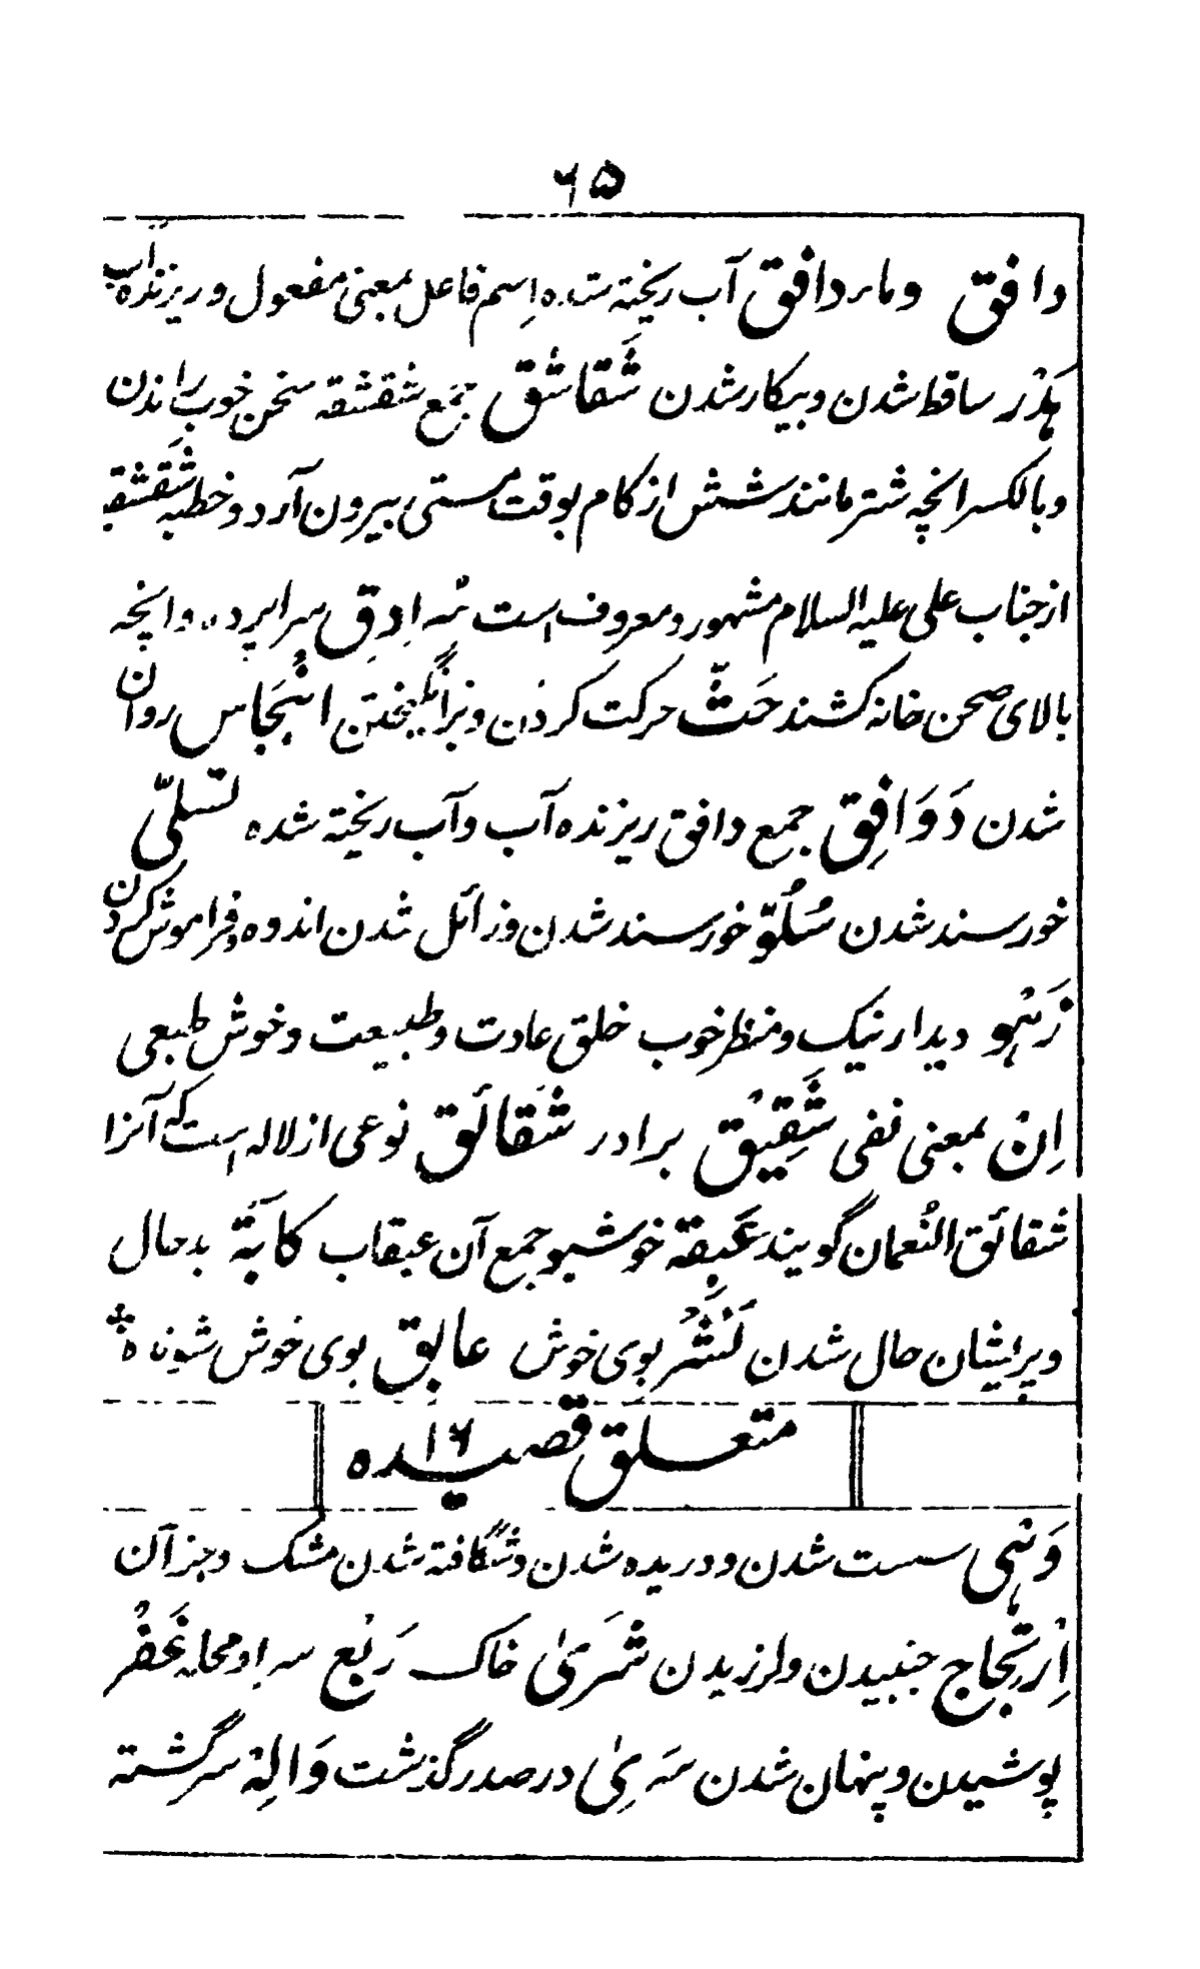 ۶۵
دافق وماء دافق آب ریخته شده اسم فاعل بمعنی مفعول و ریزنده آب
هَدْر ساقط شدن و بیکار شدن شَقاشق جمع شقشقه سخن خوب راندن
وبالکسر انچه شتر مانند شش از کام بوقت مستی بیرون آرد و خطبه شَقشقیه
از جناب علی علیه السلام مشهور و معروف است سُرادِق سراپرده و انچه
بالای صحن خانه کشند حَثّ حرکت کردن و برانگیختن انْبِجَاس روان
شدن دَوَافِق جمع دافق ریزنده آب و آب ریخته شده تسلّی
خورسند شدن سُلُوّ خورسند شدن و زائل شدن اندوه و فراموش کردن
زَہْو دیدار نیک و منظر خوب خلق عادت و طبیعت و خوش طبعی
اِنْ بمعنی نفی شَقِیْق برادر شَقائق نوعی از لاله است که آنرا
شقائق النُعمان گویند عَبِقة خوشبو جمع آن عبقاب کآبَة بدحال
و پریشان حال شدن نَشْر بوی خوش عابِق بوی خوش شونده
متعلق قصیده ۱۶
وَہْی سست شدن و دریده شدن و شگافته شدن مشک و جز آن
اِرْتِجَاج جنبیدن و لرزیدن ثَرَیٰ خاک رَبْع سرا و محله غَفْر
پوشیدن و پنهان شدن سَرِیٰ در صدر گذشت وَالِهْ سرگشته